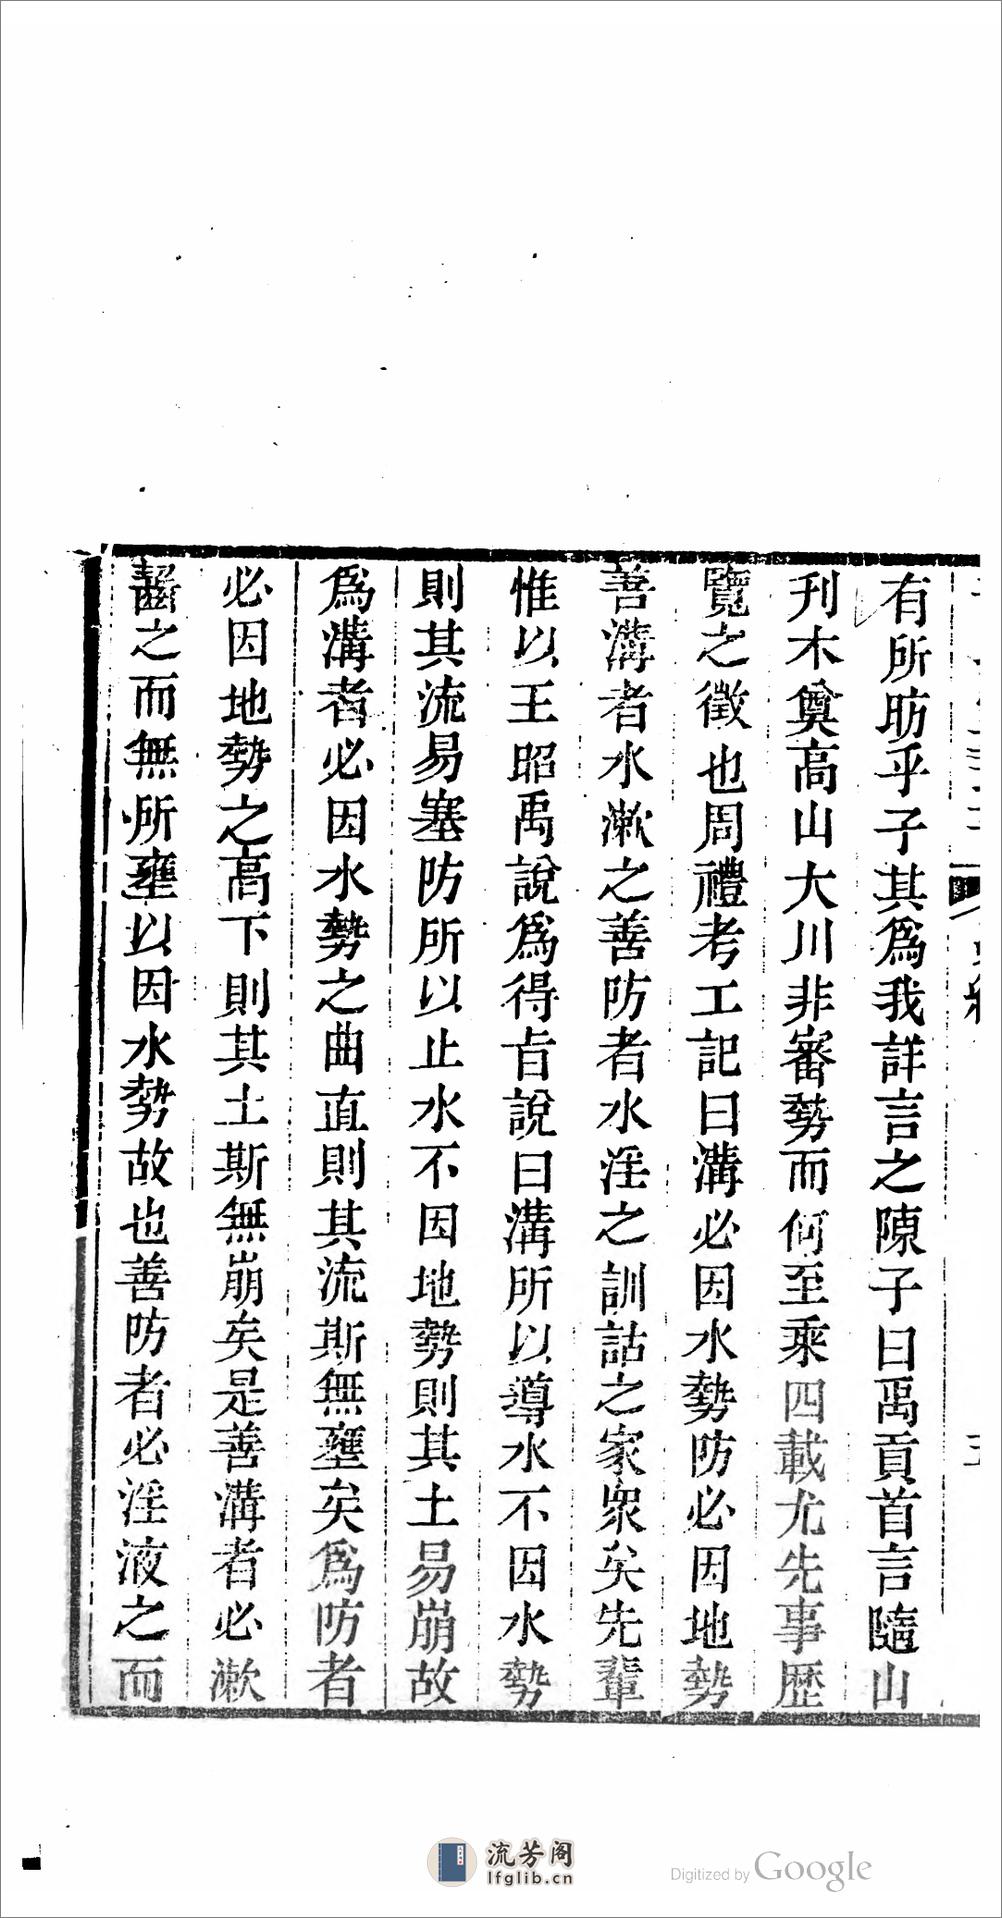 有所昉乎子其爲我詳言之陳子曰禹貢首言隨山
刋木奠高山大川非審勢而何至乘四載尤先事歴
覽之徵也周禮考工記曰溝必因水勢防必因地勢
善溝者水漱之善防者水淫之訓詁之家衆矣先輩
惟以王昭禹說爲得旨說曰溝所以導水不因水勢
則其流易塞防所以止水不因地勢則其土易崩故
爲溝者必因水勢之曲直則其流斯無壅矣爲防者
必因地勢之高下則其土斯無崩矣是善溝者必漱
齧之而無所壅以因水勢故也善防者必淫液之而
五
流芳阁
lfglib.cn
Digitized by Google